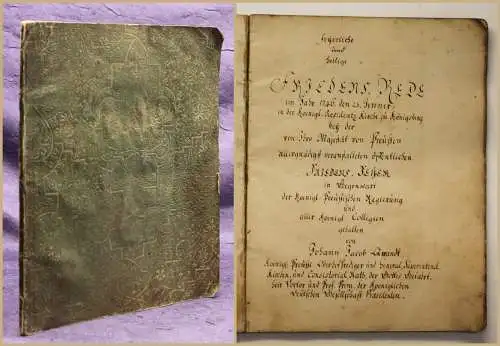 Feyerliche
und
heilige
FRIEDENS, REDE
im Jahr 1746. den 23. Jenner
in der Koenigl. Residentz Kirche zu Königsberg
bey der
von Ihro Majestät von Preußen
allergnädigst veranstalteten öffentlichen
FRIEDENS, FEYER
in Gegenwart
der Koenigl. Preußischen Regierung
und
aller Koenigl. Collegien
gehalten
von
Johann Jacob Quandt
Koenigl. Preuß. Oberhofprediger und General Superintend.
Kirchen, und Consistorial Rath, der Gottes Gelahrt.
Doctor und Prof. Prim. der Koeniglichen
Deutschen Gesellschaft Præsidenten.